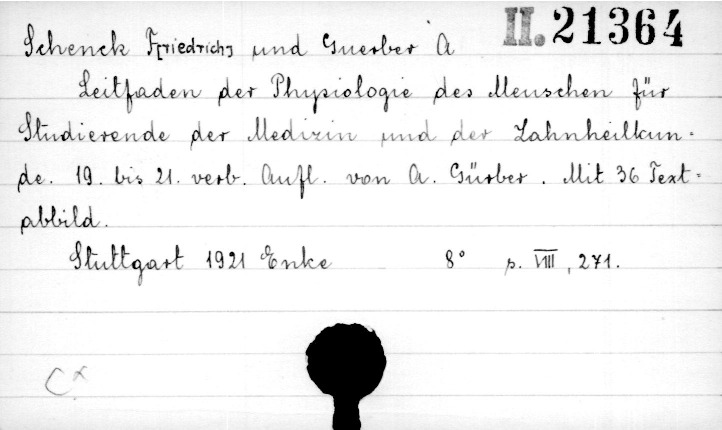 II. 21364
Schenck F[riedrich] und Guerber A
Leitfaden der Physiologie des Menschen für
Studierende der Medizin und der Zahnheilkun-
de. 19. bis 21. verb. Aufl. von A. Gürber. Mit 36 Text-
abbild.
Stuttgart 1921 Enke 8° p. VIII, 271.